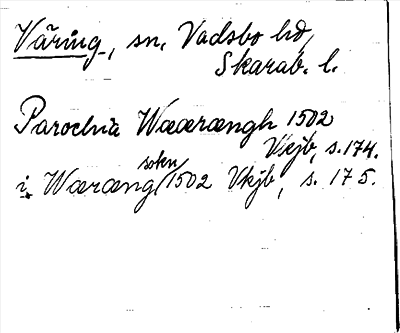 Väring, sn, Vadsbo hd,
Skarab. l.
Parochia Wææræængh 1502
Vkjb, s. 174.
i Wæræng soken 1502 Vkjb, s. 175.